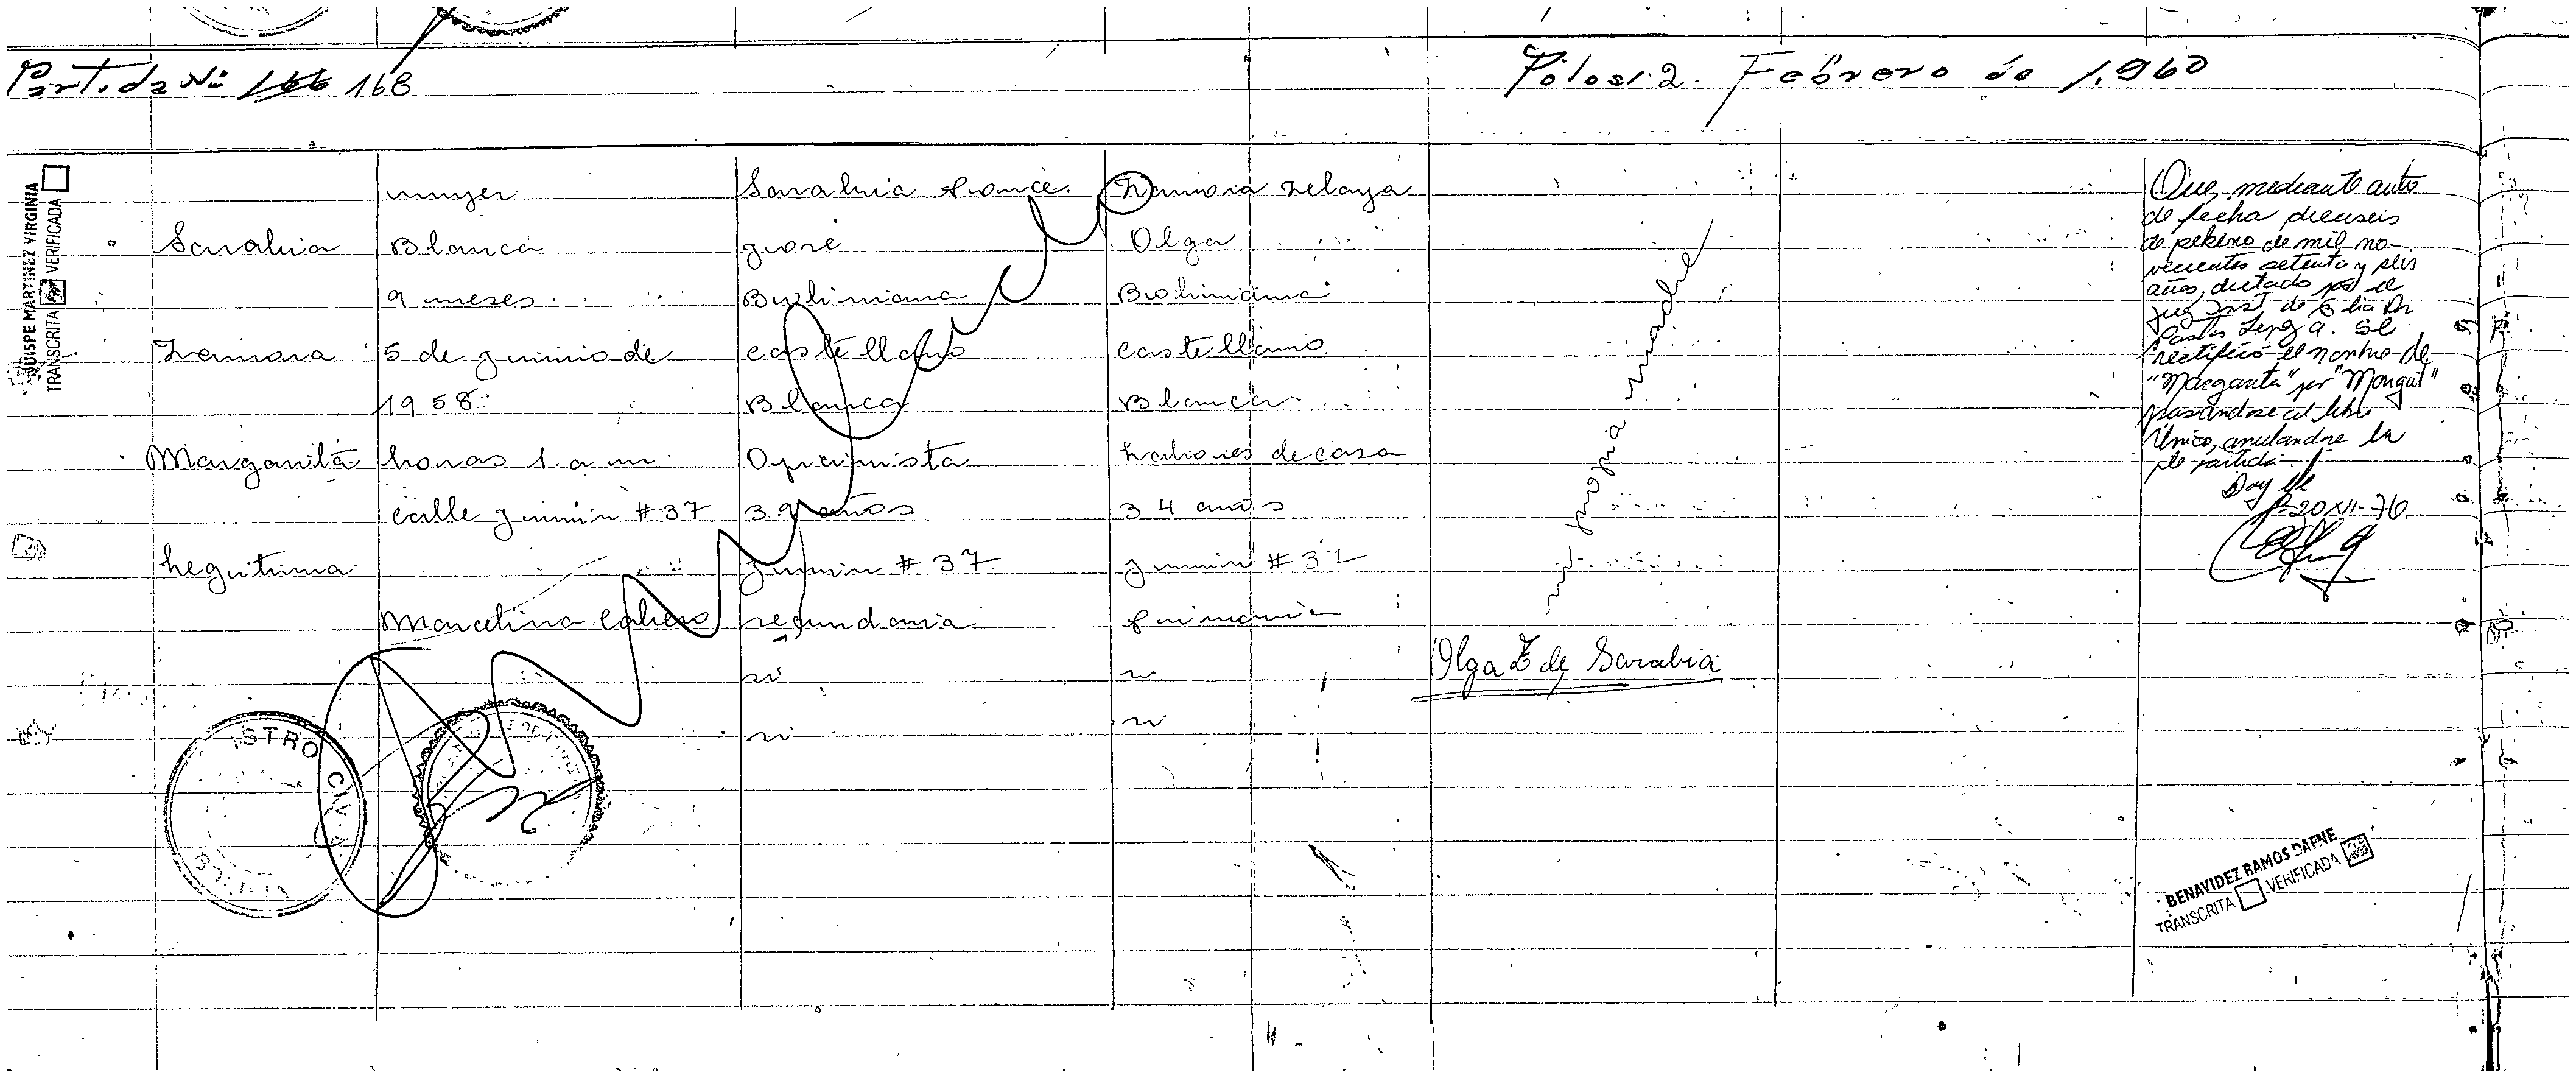 Partida Nº 166 168
Potosi 2. Febrero de 1.960
QUISPE MARTINEZ VIRGINIA
TRANSCRITA VERIFICADA
Sarabia
Zamora
Margarita
Legitima
mujer
Blanca
9 meses
5 de junio de
1958
horas 1 a m
calle junin # 37
Marcelina
Sarabia Arance
José
Boliviana
castellano
Blanca
Oficinista
39 años
Junin # 37
secundaria
si
si
Zamora Zelaya
Olga
Boliviana
castellano
Blanca
labores de casa
34 años
Junin # 37
primaria
si
si
su propia madre
Olga Z de Sarabia
Que, mediante auto
de fecha dieciseis
de de mil no-
vecientos setenta y seis
años, dictado por el
Juez Inst. de
se
rectificó el nombre de
"Margarita" por "Margot"
pasandose al libro
Único, anulandose la
pte partida.
Doy fé
P-20-XII-76
ISTRO CIVIL
BENAVIDEZ RAMOS DAFNE
TRANSCRITA VERIFICADA